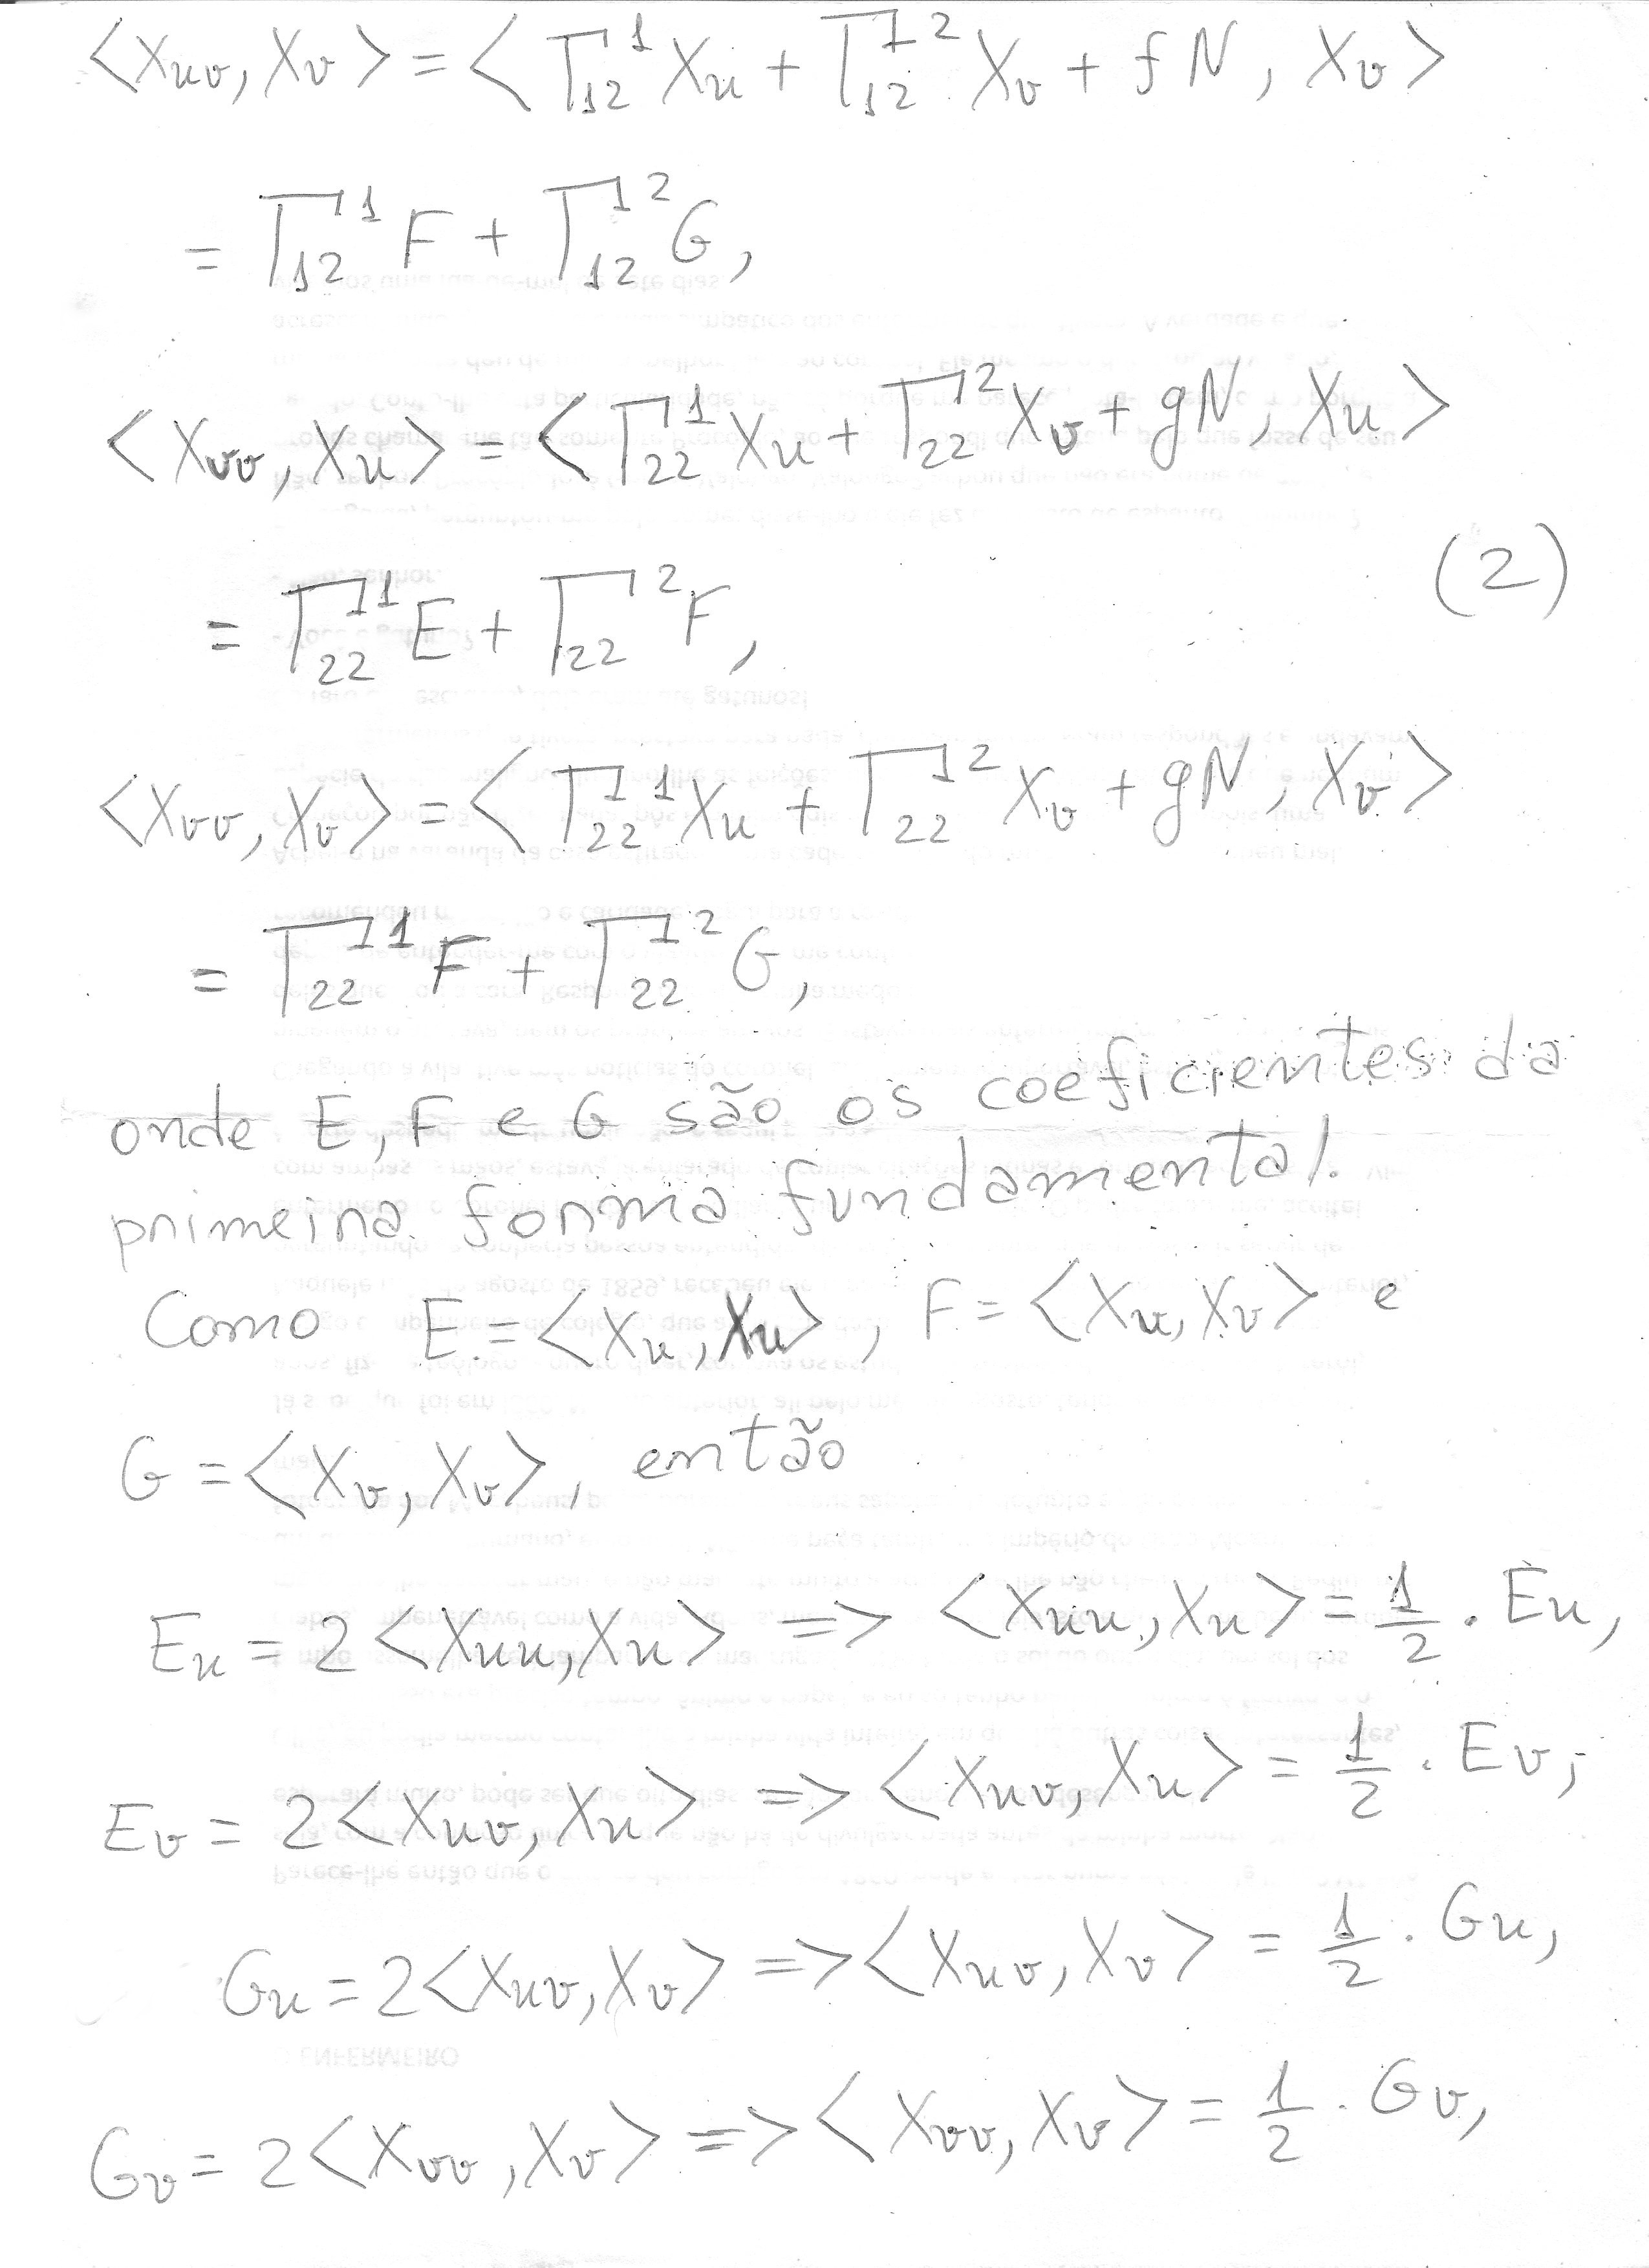 <Xuv, Xv> = <Γ₁₂¹ Xu + Γ₁₂² Xv + fN, Xv>
= Γ₁₂¹ F + Γ₁₂² G,
<Xvv, Xu> = <Γ₂₂¹ Xu + Γ₂₂² Xv + gN, Xu>
(2)
= Γ₂₂¹ E + Γ₂₂² F,
<Xvv, Xv> = <Γ₂₂¹ Xu + Γ₂₂² Xv + gN, Xv>
= Γ₂₂¹ F + Γ₂₂² G,
onde E, F e G são os coeficientes da
primeira forma fundamental.
Como E = <Xu, Xu>, F = <Xu, Xv> e
G = <Xv, Xv>, então
Eu = 2<Xuu, Xu> => <Xuu, Xu> = 1/2 . Eu,
Ev = 2<Xuv, Xu> => <Xuv, Xu> = 1/2 . Ev,
Gu = 2<Xuv, Xv> => <Xuv, Xv> = 1/2 . Gu,
Gv = 2<Xvv, Xv> => <Xvv, Xv> = 1/2 . Gv,